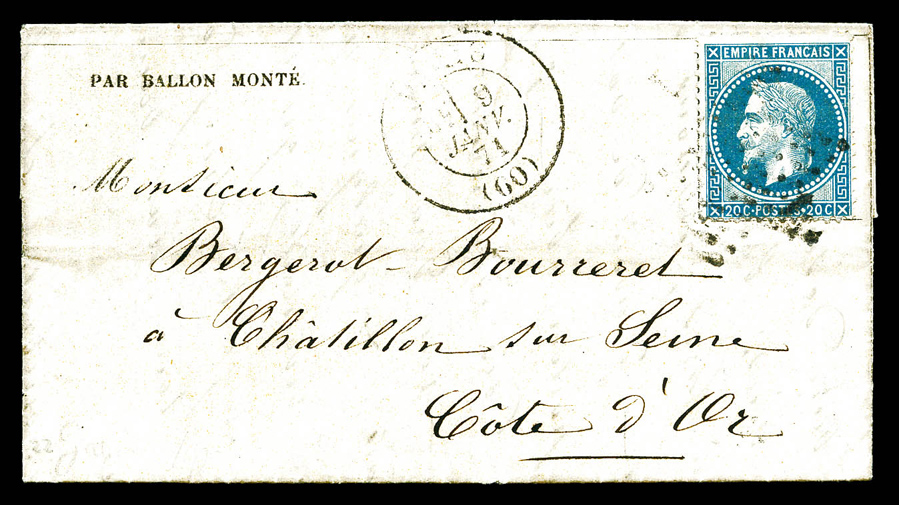 PAR BALLON MONTÉ.
9
JANV.
71
(60)
EMPIRE FRANÇAIS
20C·POSTES·20C
Monsieur
Bergerot-Bourreret
à Châtillon sur Seine
Côte d'Or